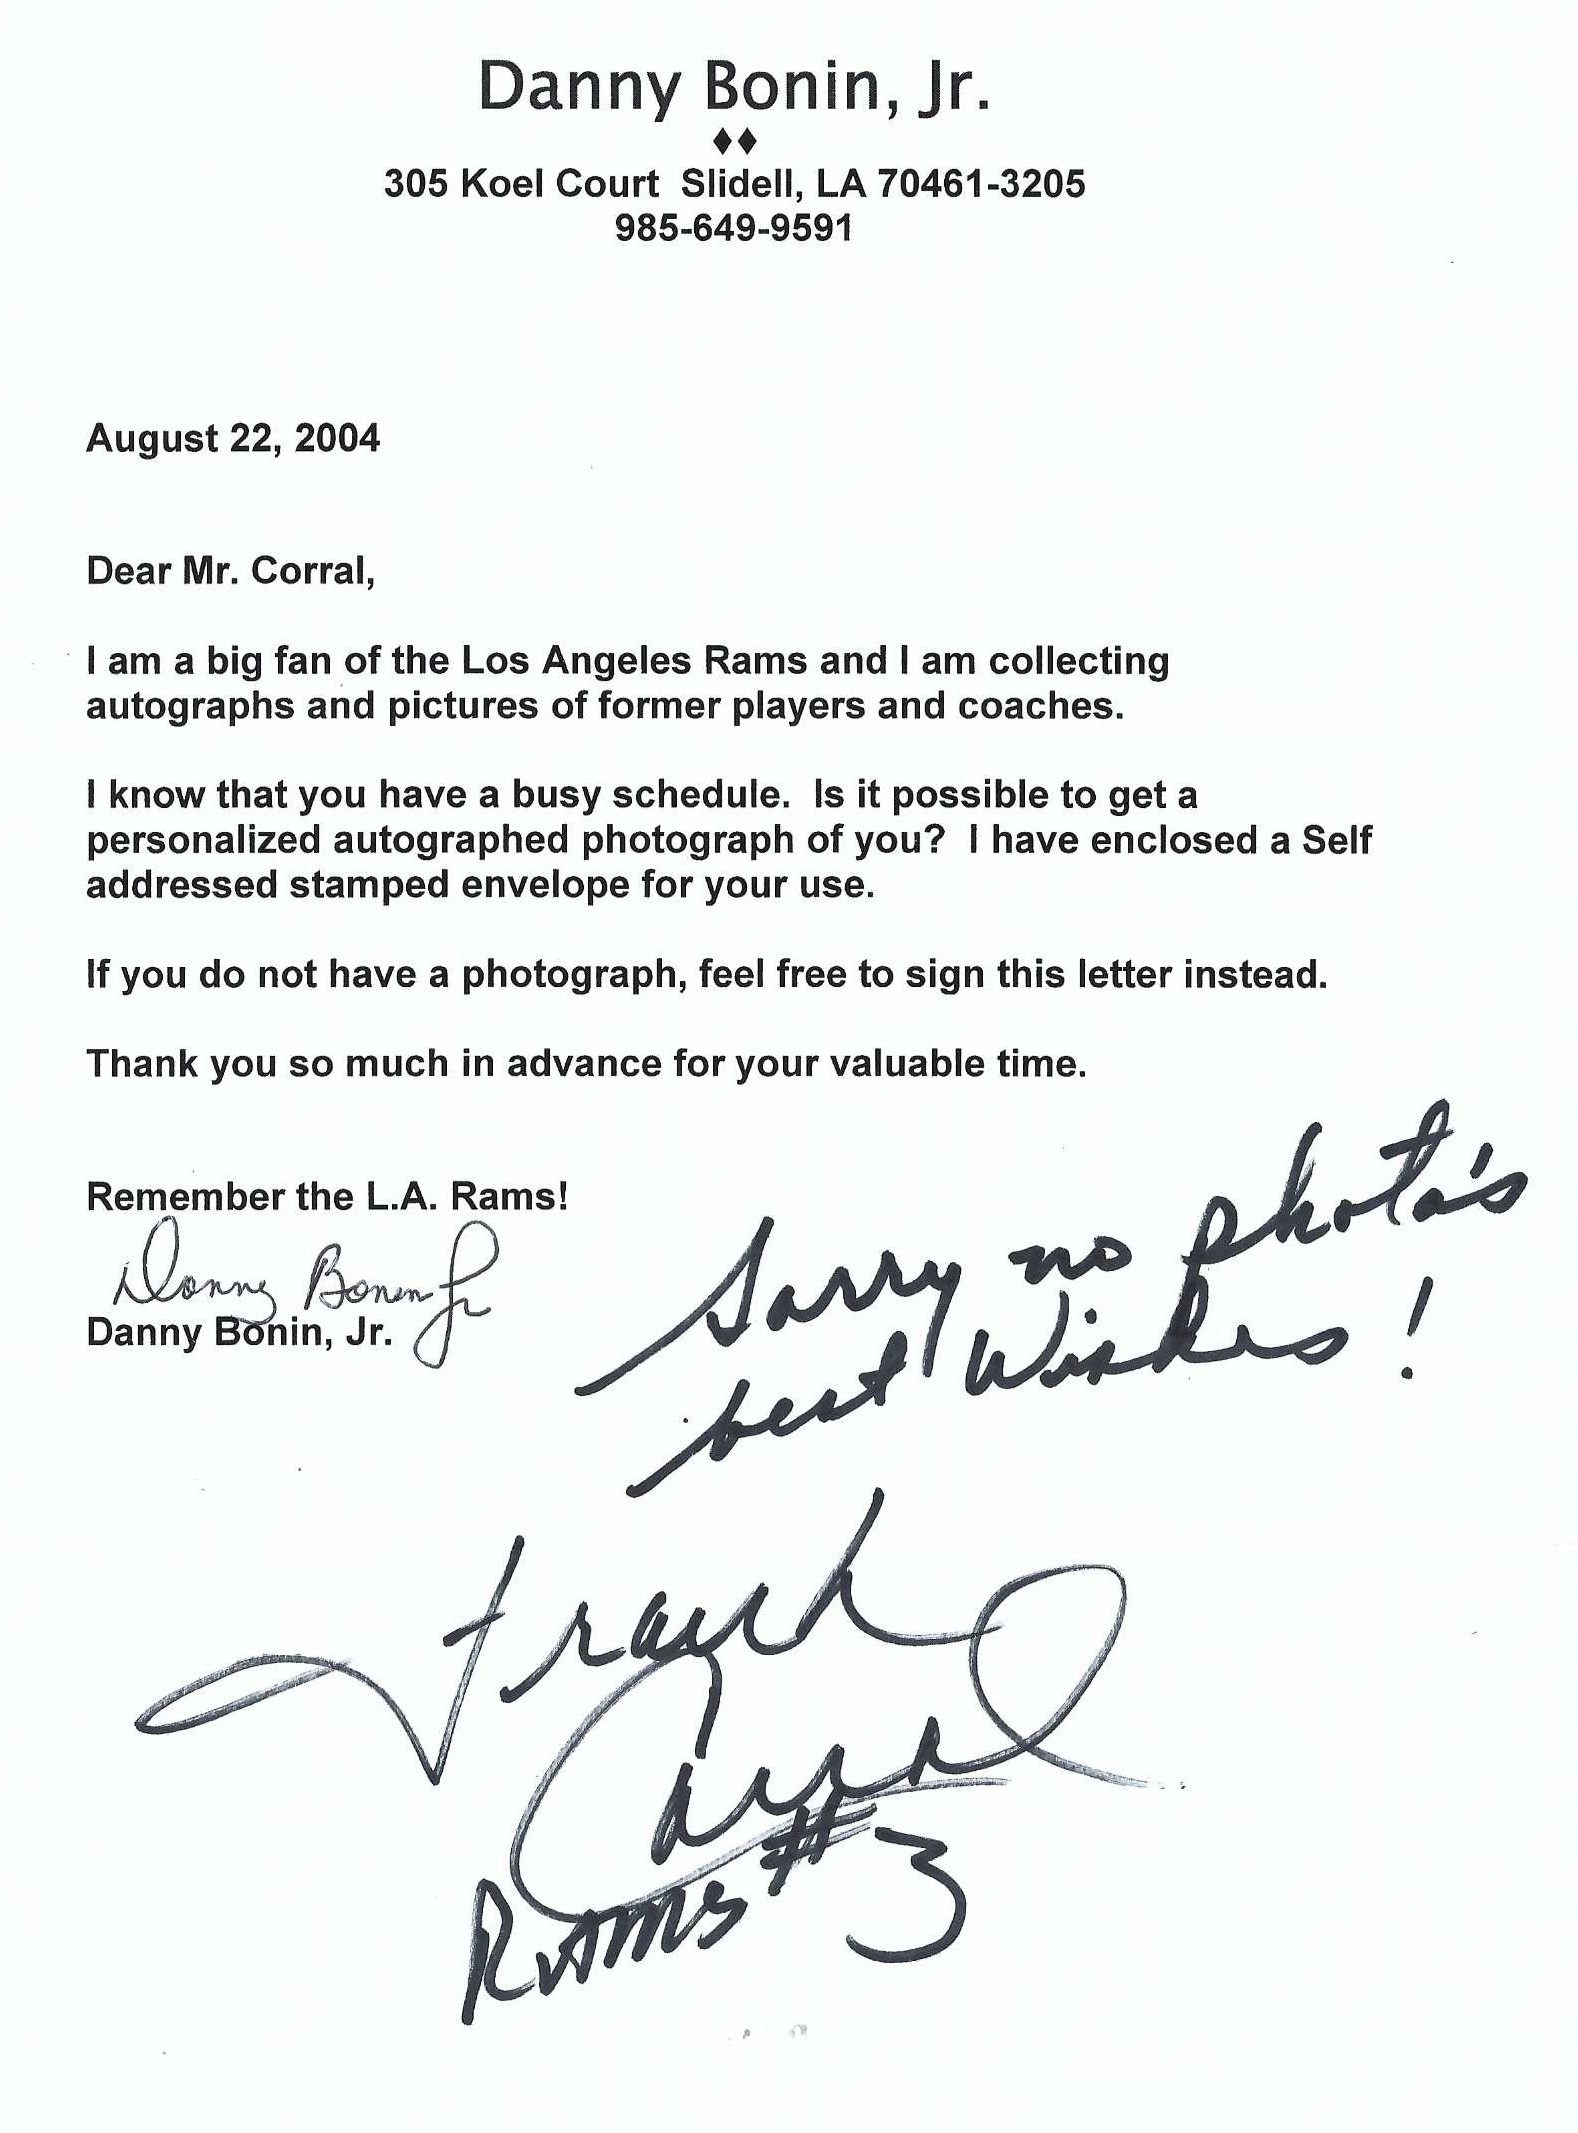 Danny Bonin, Jr.
♦♦
305 Koel Court  Slidell, LA 70461-3205
985-649-9591
August 22, 2004
Dear Mr. Corral,
I am a big fan of the Los Angeles Rams and I am collecting
autographs and pictures of former players and coaches.
I know that you have a busy schedule.  Is it possible to get a
personalized autographed photograph of you?  I have enclosed a Self
addressed stamped envelope for your use.
If you do not have a photograph, feel free to sign this letter instead.
Thank you so much in advance for your valuable time.
Remember the L.A. Rams!
Danny Bonin Jr
Danny Bonin, Jr.
Sorry no photo's
best Wishes!
Frank
Corral
RAMS #3